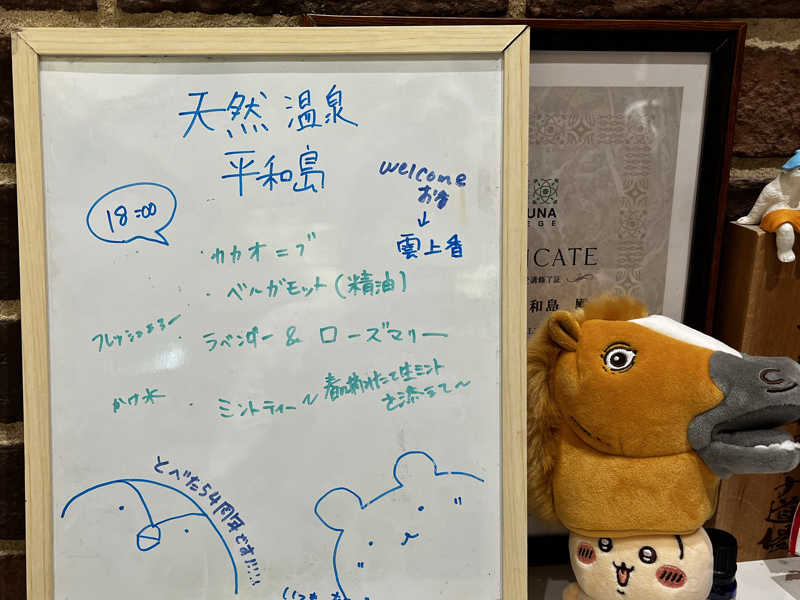 天然 温泉
平和島
welcome
お香
↓
雲上香
18:00
・カカオニブ
・ベルガモット(精油)
ラベンダー & ローズマリー
かけ水
・ミントティー 〜
生ミント
を添えて〜
とべた54周年です!!!!
UNA
EGE
ICATE
和島